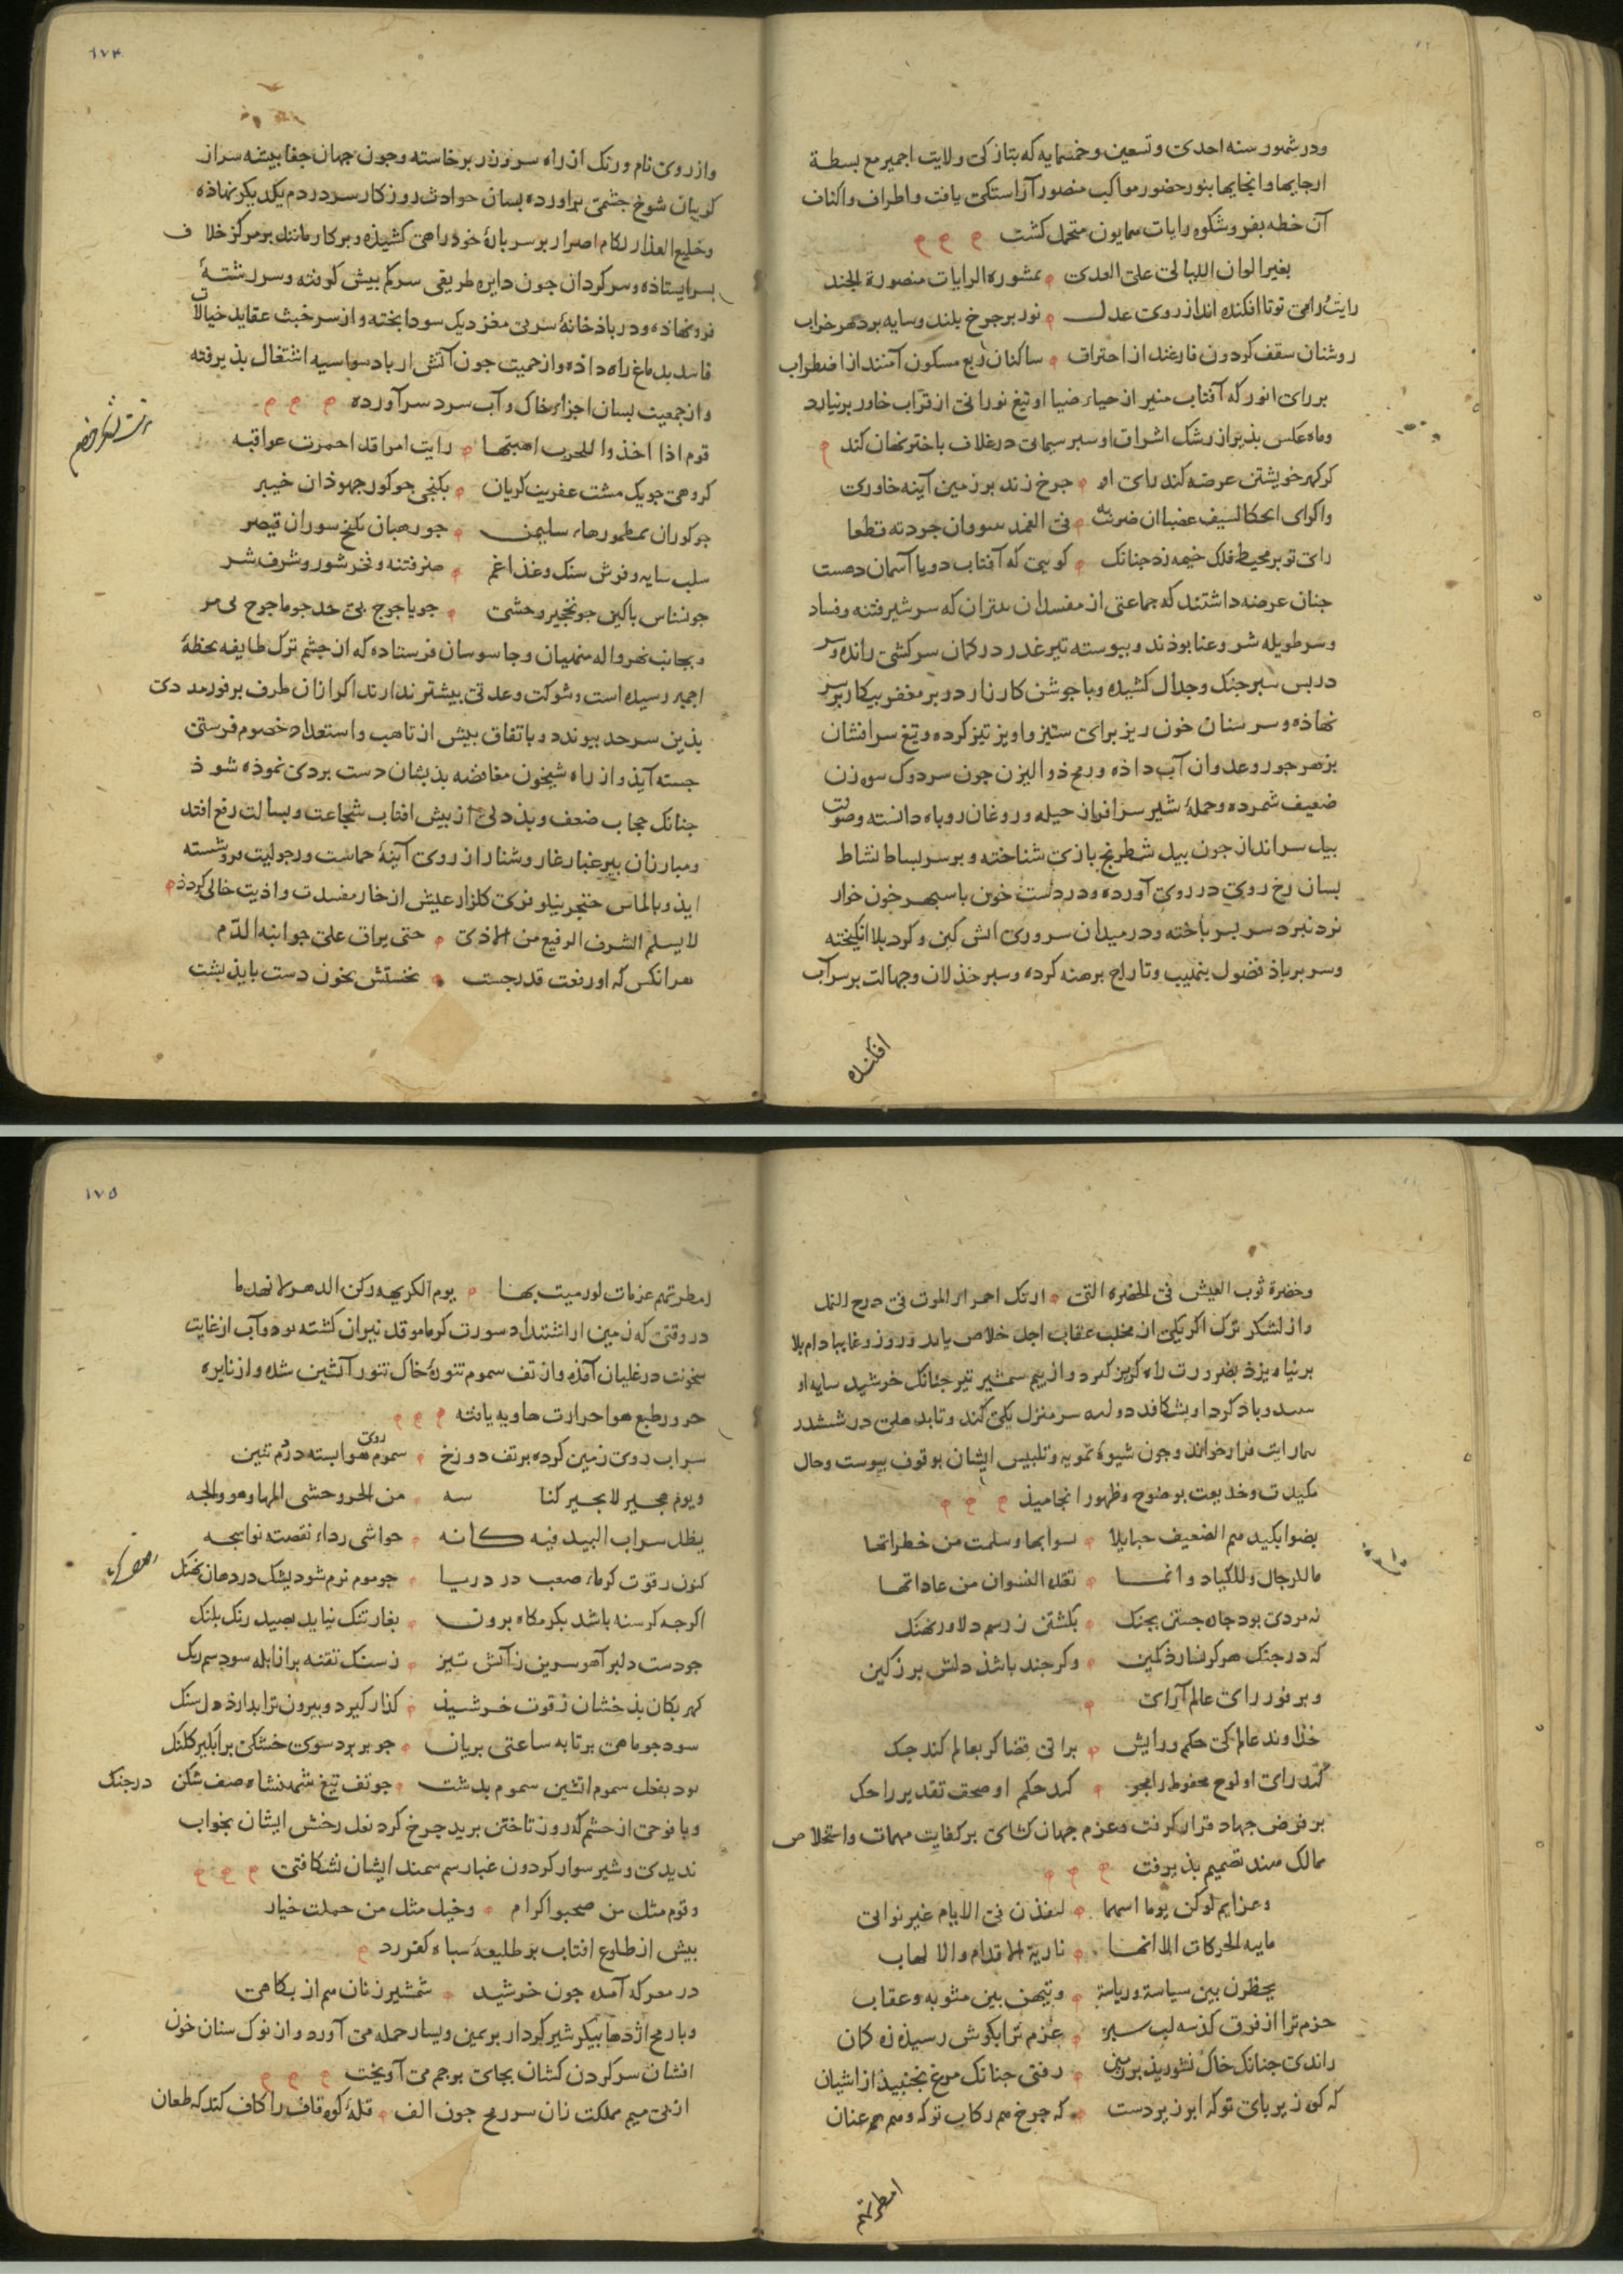 ودر شهور سنه احدی وتسعین وخمسمایه که بتازکی ولایت اجمیر مع بسطة
ارجایها وانحایها بنور حضور مواکب منصور آراستکی یافت واطراف واکناف
آن خطه بفر وشکوه رایات همایون متجمل کشت
بغیر الوان اللیالی علی العدی منشوره الرایات منصورة الجند
رایت رامی توتا افکنده انداز روی عدل نور بر چرخ بلند وسایه بر دهر خراب
روشنان سقف کردون فارغند از احتراق ساکنان ربع مسکون آمنند از اضطراب
بر رای انور که آفتاب منیر از حیاء ضیا او تیغ نورانی از قراب خاور برنیارد
وماه عکس بذیر از رشک اشراق او سبر سیمابی در غلاف باختر نهان کند
کر کهر خویشتن عرضه کند رای او جرخ زند بر زمین آینه خاوری
رای تو بر محیط فلک خیمه زد جنانک کویی که آفتاب دویا آسمان دهست
جنان عرضه داشتند که جماعتی از مفسدان متران که سر شیر فتنه وفساد
وسر طویله شر وعنا بوذند وبیوسته تیر غدر در کمان سرکشی رانده وسر
در بس سبر جنک وجدال کشیده وبا جوشن کارزار در بر مغفر بیکار بر سر
نهاذه وسر سنان خون ریز برای ستیز واویز تیز کرده وتیغ سرافشان
بزهر جور وعدوان آب داذه ورمح ذوالیزن جون سر دوک سوزن
ضعیف شمرده وحملهٔ شیر سرافراز حیله وروغان روباه دانسته وصولت
بیل سرانداز جون بیل شطرنج بازی شناخته وبر سر بساط نشاط
بسان رخ روی در روی آورده ودر دست خون با سبهر خون خوار
نرد نبرد سر بسر باخته ودر میدان سروری اتش کین وکرد بلا انکیخته
وسر بر باذ فضول بنهیب وتاراج برهنه کرده وسبر خذلان وجهالت بر سر آب
افکنده
١٧٤
واز روی نام ورنک از راه سر زدر برخاسته وجون جهان جفا بیشه سراز
کریبان شوخ جشمی براورده بسان حوادث روزکار سر در دم یکدیکر نهاذه
وخلیع العذار لکام اصرار بر سر بارهٔ خود رامی کشیذه وبرکار مانند بر مرکز خلاف
بسر ایستاذه وسرکردان جون دایره طریقی سرکم بیش کرفته وسر رشتهٔ
فرو نهاذه ودر باذ خانهٔ سر بی مغز دیک سودا بخته واز سر خبث عقاید خیالات
فاسد بدماغ راه داذه واز حمیت جون آتش از باد سواسیه اشتغال بذیرفته
واز جمعیت بسان اجزاء خاک وآب سرد سر آورده
قوم اذا اخذوا للحرب اهبتها رایت امرا قد احمرت عواقبه
کروهی جو یک مشت عفریت کریان بکنجی جو کور جهوذان خیبر
جو کوران بمطمورهاء سلیمن جو رهبان بکخ سوران قیصر
سلب سایه وفرش سنک وغذا غم هنر فتنه وفخر شور وشرف شر
جو نسناس باکین جو نخجیر وحشی جو یاجوج بی حد جو ماجوج بی مر
وبجانب نهرواله منهیان وجاسوسان فرستاده که از جشم ترک طایفه بخطهٔ
اجمیر رسیده است وشوکت وعدتی بیشتر ندارند اکر ازان طرف بر فور مددی
بذین سرحد بیوندد وباتفاق بیش از تاهب واستعداد خصوم فرستی
جسته آیذ واز راه شبیخون مغافصه بذیشان دست بردی نموذه شوذ
جنانک حجاب ضعف وبذدلی از بیش افتاب شجاعت وبسالت رفع افتد
ومبارزان بیر غبار غار وشنار از روی آینهٔ حماست ورجولیت فرو شسته
ایذ وبالماس خنجر نیلوفری کلزار عیش از خار مفسدت واذیت خالی کردذ
لا یسلم الشرف الرفیع من الاذی حتی یراق علی جوانبه الدم
هر انکس که او رفعت قدر جست نخستش بخون دست بایذ بشت
وخضرة ثوب العیش فی الخضرة التی ارتک احمرار الموت فی مدرج النمل
واز لشکر ترک اکر یکی از مخلب عقاب اجل خلاص یابد وروز وغا ببا دام بلا
برنیاویزد بضرورت راه کریز کیرد واز بیم شمشیر تیز جنانک خرشید سایه او
همارایت فرار خواند وجون شیوهٔ تمویه وتلبیس ایشان بوقوف بیوست وحال
مکیدت وخدیعت بوضوح وظهور انجامیذ
بضوابکید هم الضعیف حبایلا لسوابها وسلمت من خطراتها
ما للرجال وللکیاد وانما تقلد النسوان من عاداتها
نه مردی بود جاه جستن بجنک بکشتن ز رسم دلاور نهنک
که در جنک هرکو نسازد کمین وکر جند باشذ دلش بر ز کین
وبر نور رای عالم آرای
خذاوند عالم کی حکم ورایش براتی قضا کر بعالم کند جک
کند رای او لوح محفوظ را محو کند حکم او صحف تقدیر را حک
بر فرض جهاد قرار کرفت وعزم جهان کشای بر کفایت مهمات واستخلاص
ممالک هند تصمیم بذیرفت
وعزایم لو کن یوما اسهما لنفذن فی الایام غیر نوابی
ماییه الحرکات الا انها ناریة الاقدام والالهاب
یخطرن بین سیاسة وریاسة ویتیهن بین مثوبه وعقاب
حزم ترا از فرق کذسه لب سبر عزم ترا بکوش رسیذه زه کان
راندی جنانک خاک نشورید بر زمین رفتی جنانک مرغ نجنبید از اشیان
که کوه زیر بای تو که ابر زیر دست که جرخ هم رکاب تو که وهم هم عنان
امطرتهم
١٧٥
امطرتهم عزمات لو رمیت بها یوم الکریهه رکن الدهر لانهدما
در وقتی که زمین از اشتداد سورت کرما موقد نیران کشته بود وآب از غایت
سخونت در غلیان آمذه واز تف سموم تنورهٔ خاک تنور آتشین شده واز نایره
حرور طبع هوا حرارت هاویه یافته
سراب روی زمین کرده بر تف دوزخ سموم روی هوا بسته در دم تنین
ویوم هجیر لا یجیر کناسه من الحر وحشی المها وهو والجه
یظل سراب البید فیه کانه حواشی رداء نقصته نواسجه
کنون ز قوت کرماء صعب در دریا جو موم نرم شود یشک در دهان نهنک
اکر چه کرسنه باشد بکرمکاه برون بغار تنک نیاید بصید رنک بلنک
جو دست دلبر آهو سرین ز آتش تیز ز سنک تفته بر از ابله سود سم رنک
کهر بکان بذخشان ز قوت خرشیذ کذار کیرد وبیرون ترابد از دل سنک
سود جو ماهی بر تابه ساعتی بریان جو بر برد سوی خشکی بر ابکیر کلنک
بود بفعل سموم اتشین سموم بدشت جو تف تیغ شهنشاه صف شکن در جنک
وبا فوجی از حشم که روز تاختن برید جرخ کرد نعل رخش ایشان بخواب
ندیدی وشیر سوار کردون غبار سم سمند ایشان نشکافتی
وقوم مثل من صحبوا کرام وخیل مثل من حملت خیار
بیش از طلوع افتاب بر طلیعهٔ سباه کفر زد
در معرکه آمده جون خرشید شمشیر زنان هم از بکاهی
وبا رمح اژدها بیکر شیر کردار بر یمین ویسار حمله می آورد واز نوک سنان خون
افشان سر کردن کشان بجای برجم می آویخت
از بی میم مملکت زان سر رمح جون الف قلهٔ کوه قاف را کاف کند که طعان